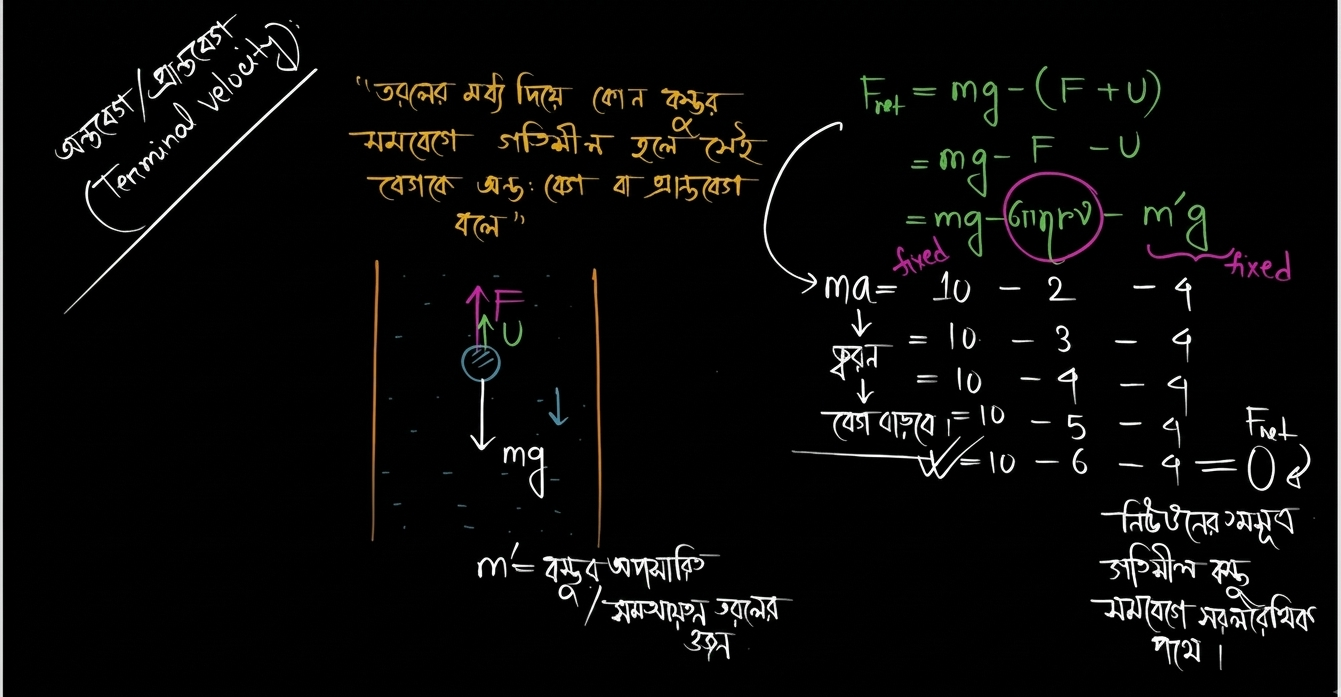 অন্তবেগ/প্রান্তবেগ
(Terminal velocity):
"তরলের মধ্য দিয়ে কোন বস্তুর
সমবেগে গতিশীল হলে সেই
বেগকে অন্ত: বেগ বা প্রান্তবেগ
বলে"
F
U
mg
m′ = বস্তুর অপসারিত
/সমআয়তন তরলের
ওজন
Fnet = mg - (F + U)
= mg - F - U
= mg - 6πηrv - m′g
fixed
fixed
ma = 10 - 2 - 4
↓
= 10 - 3 - 4
ত্বরন
= 10 - 4 - 4
↓
বেগ বাড়বে। = 10 - 5 - 4
Fnet
= 10 - 6 - 4 = 0
নিউটনের ১ম সূত্র
গতিশীল বস্তু
সমবেগে সরলরৈখিক
পথে।